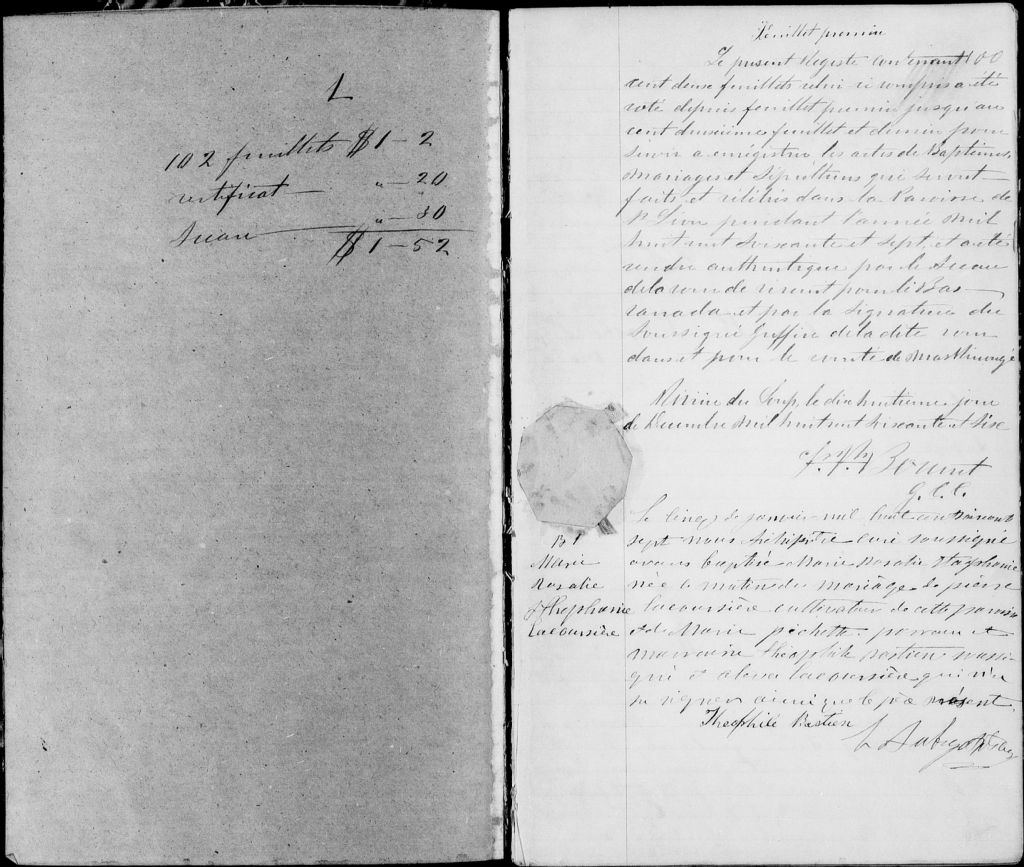 1
102 feuillets $1 – 2
certificat " – 20
Sceau " – 30
$1 – 52
Feuillet premier
Le présent Registe contenant 100
cent deux feuillets celui-ci compris a été
coté depuis feuillet premier jusqu'au
cent deuxième feuillet et dernier pour
servir a enrégistrer les actes de Baptêmes,
Mariages et Sépultures qui seront
faits et célébrés dans la Paroisse de
St Léon pendant l'année Mil
huit cent soixante et sept, et a été
rendu authentique par le Sceau
de la cour de circuit pour le Bas-
Canada et par la signature du
Soussigné Greffier de la dite cour
dans et pour le comté de Maskinongé
Rivière du Loup, le dix huitieme jour
de Décembre Mil huit cent soixante et Six
G. C. C.
Le cinq de janvier mil huit cent soixante
sept nous prêtre curé soussigné
avons baptisé Marie Rosalie Stephanie
née le matin du mariage de pierre
Lacoursière cultivateur de cette paroisse
et de Marie pichette. parrain et
marraine théophile bastien soussi-
gné et Lacoursière qui n'a
su signer ainsi que le père présent.
Théophile Bastien
B 1
Marie
Rosalie
Stephanie
Lacoursière